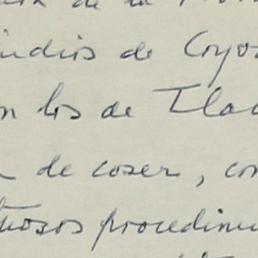 de la
indios de Coyo
on los de Tlac
de coser, con
tuosos procedimi